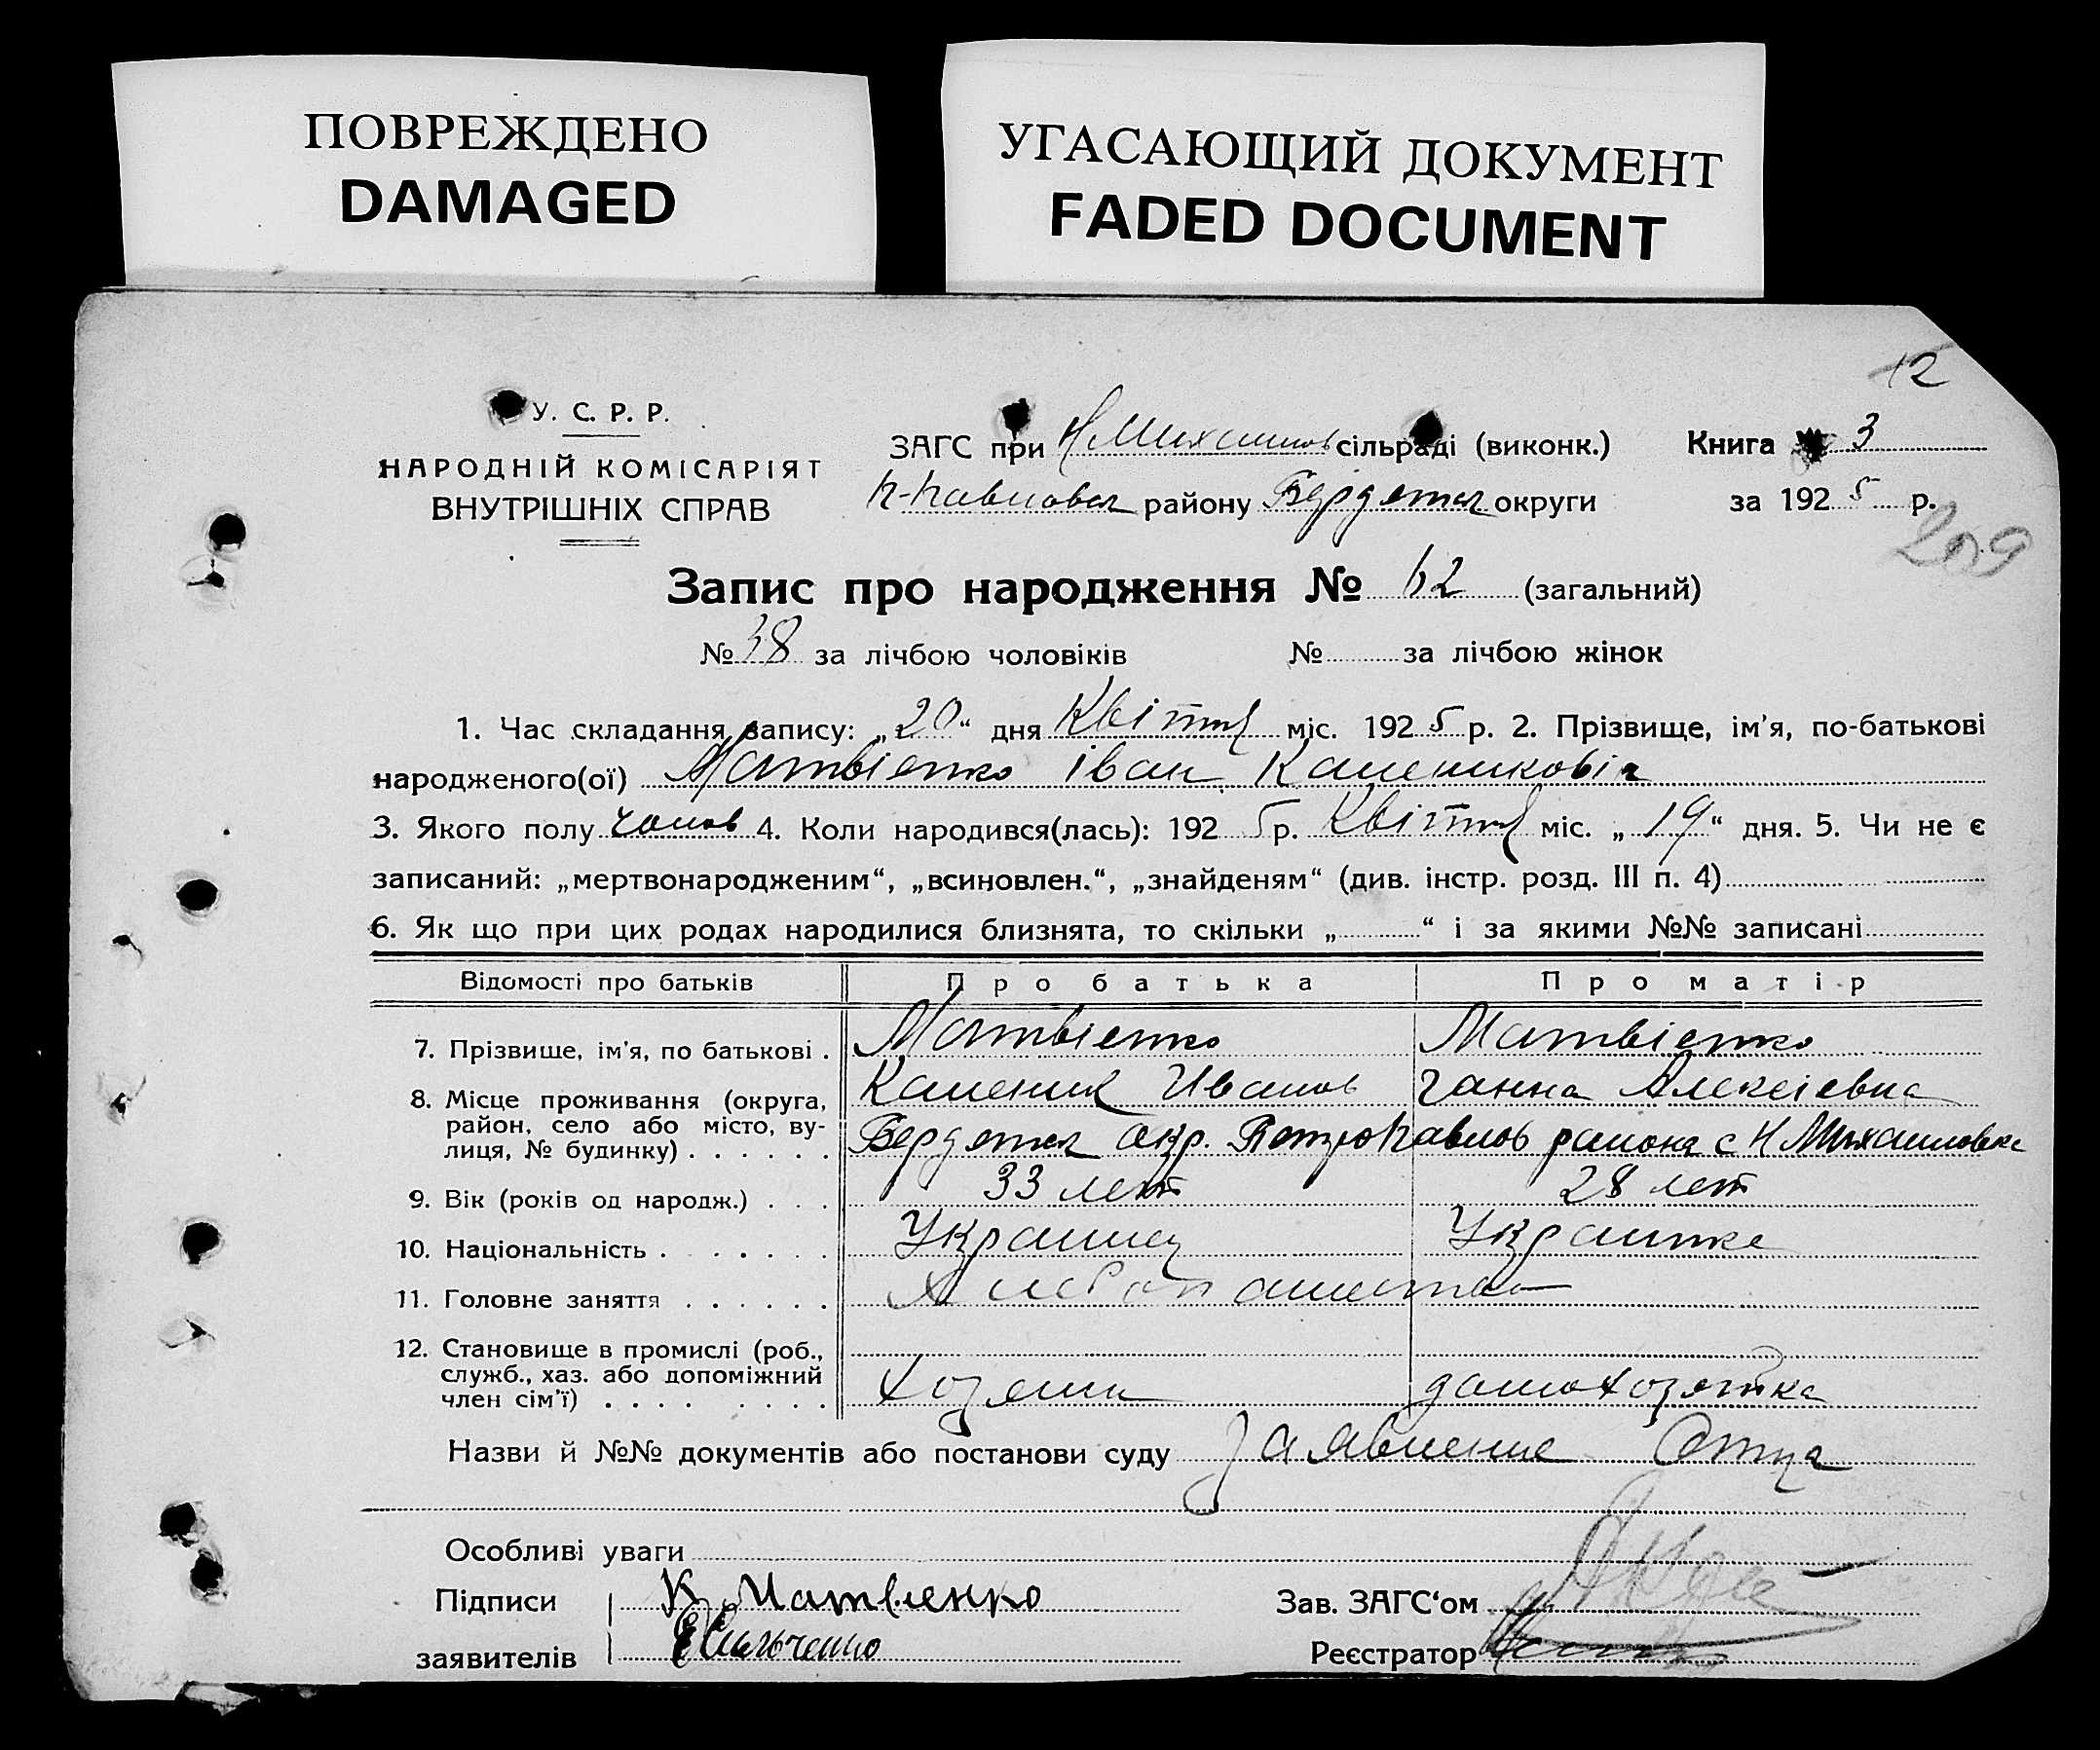 ПОВРЕЖДЕНО
DAMAGED
УГАСАЮЩИЙ ДОКУМЕНТ
FADED DOCUMENT
12
У. С. Р. Р.
НАРОДНІЙ КОМІСАРІЯТ
ВНУТРІШНІХ СПРАВ
ЗАГС при Н Михайлов сільраді (виконк.)
Книга № 3
П-Павловск району Бердянск округи
за 1925 р.
209
Запис про народження № 62 (загальний)
№ 38 за лічбою чоловіків № за лічбою жінок
1. Час складання запису: „20“ дня Квітня міс. 1925 р. 2. Прізвище, ім'я, по-батькові
народженого(ої) Матвієнко Іван Калениковіч
3. Якого полу чолов 4. Коли народився(лась): 1925 р. Квітня міс. „19“ дня. 5. Чи не є
записаний: „мертвонародженим“, „всиновлен.“, „знайденям“ (див. інстр. розд. III п. 4)
6. Як що при цих родах народилися близнята, то скільки „ “ і за якими №№ записані
Відомості про батьків Про батька Про матір
7. Прізвище, ім'я, по батькові . Матвієнко Матвієнко
Каленик Иванов Ганна Алексіевна
8. Місце проживання (округа, район, село або місто, вулиця, № будинку) . . . . . . Бердянск окр. Петропавлов района с Н Михайловка
9. Вік (років од народж.) . . . 33 лет 28 лет
10. Національність . . . . . . Украинец Украинка
11. Головне заняття . . . . . .
12. Становище в промислі (роб., служб., хаз. або допоміжний член сім'ї) . . . . . . . . Хозяин домохозяйка
Назви й №№ документів або постанови суду Заявление Отца
Особливі уваги
Підписи К Матвиенко Зав. ЗАГС'ом
заявителів Реєстратор